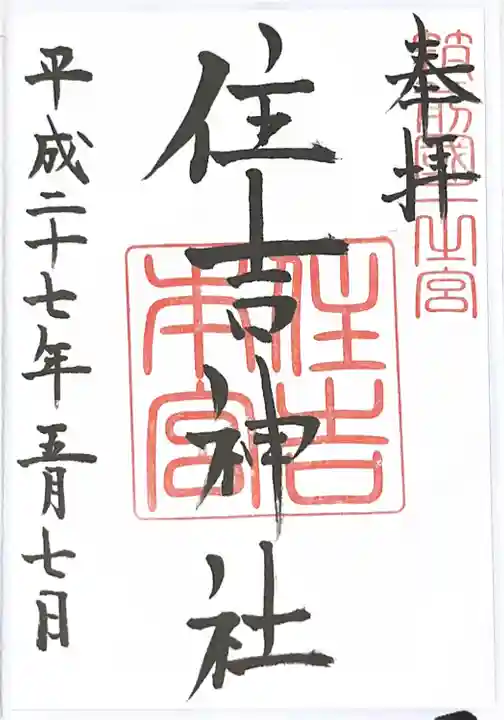 奉拝
筑前國一之宮
住吉神社
住吉
本宮
平成二十七年五月七日